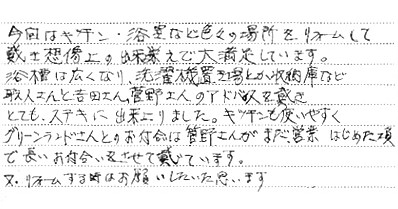 今回はキッチン・浴室など色々の場所をリフォームして
戴き想像上の出来栄えで大満足しています。
浴槽は広くなり、洗濯機置き場とか収納庫など
職人さんと吉田さん、菅野さんのアドバイスを戴き
とても、ステキに出来上りました。キッチンも使いやすく
グリーンランドさんとのお付合は菅野さんがまだ営業はじめた頃
で長いお付合いをさせて戴いています。
又、リフォームする時はお願いしたいと思います